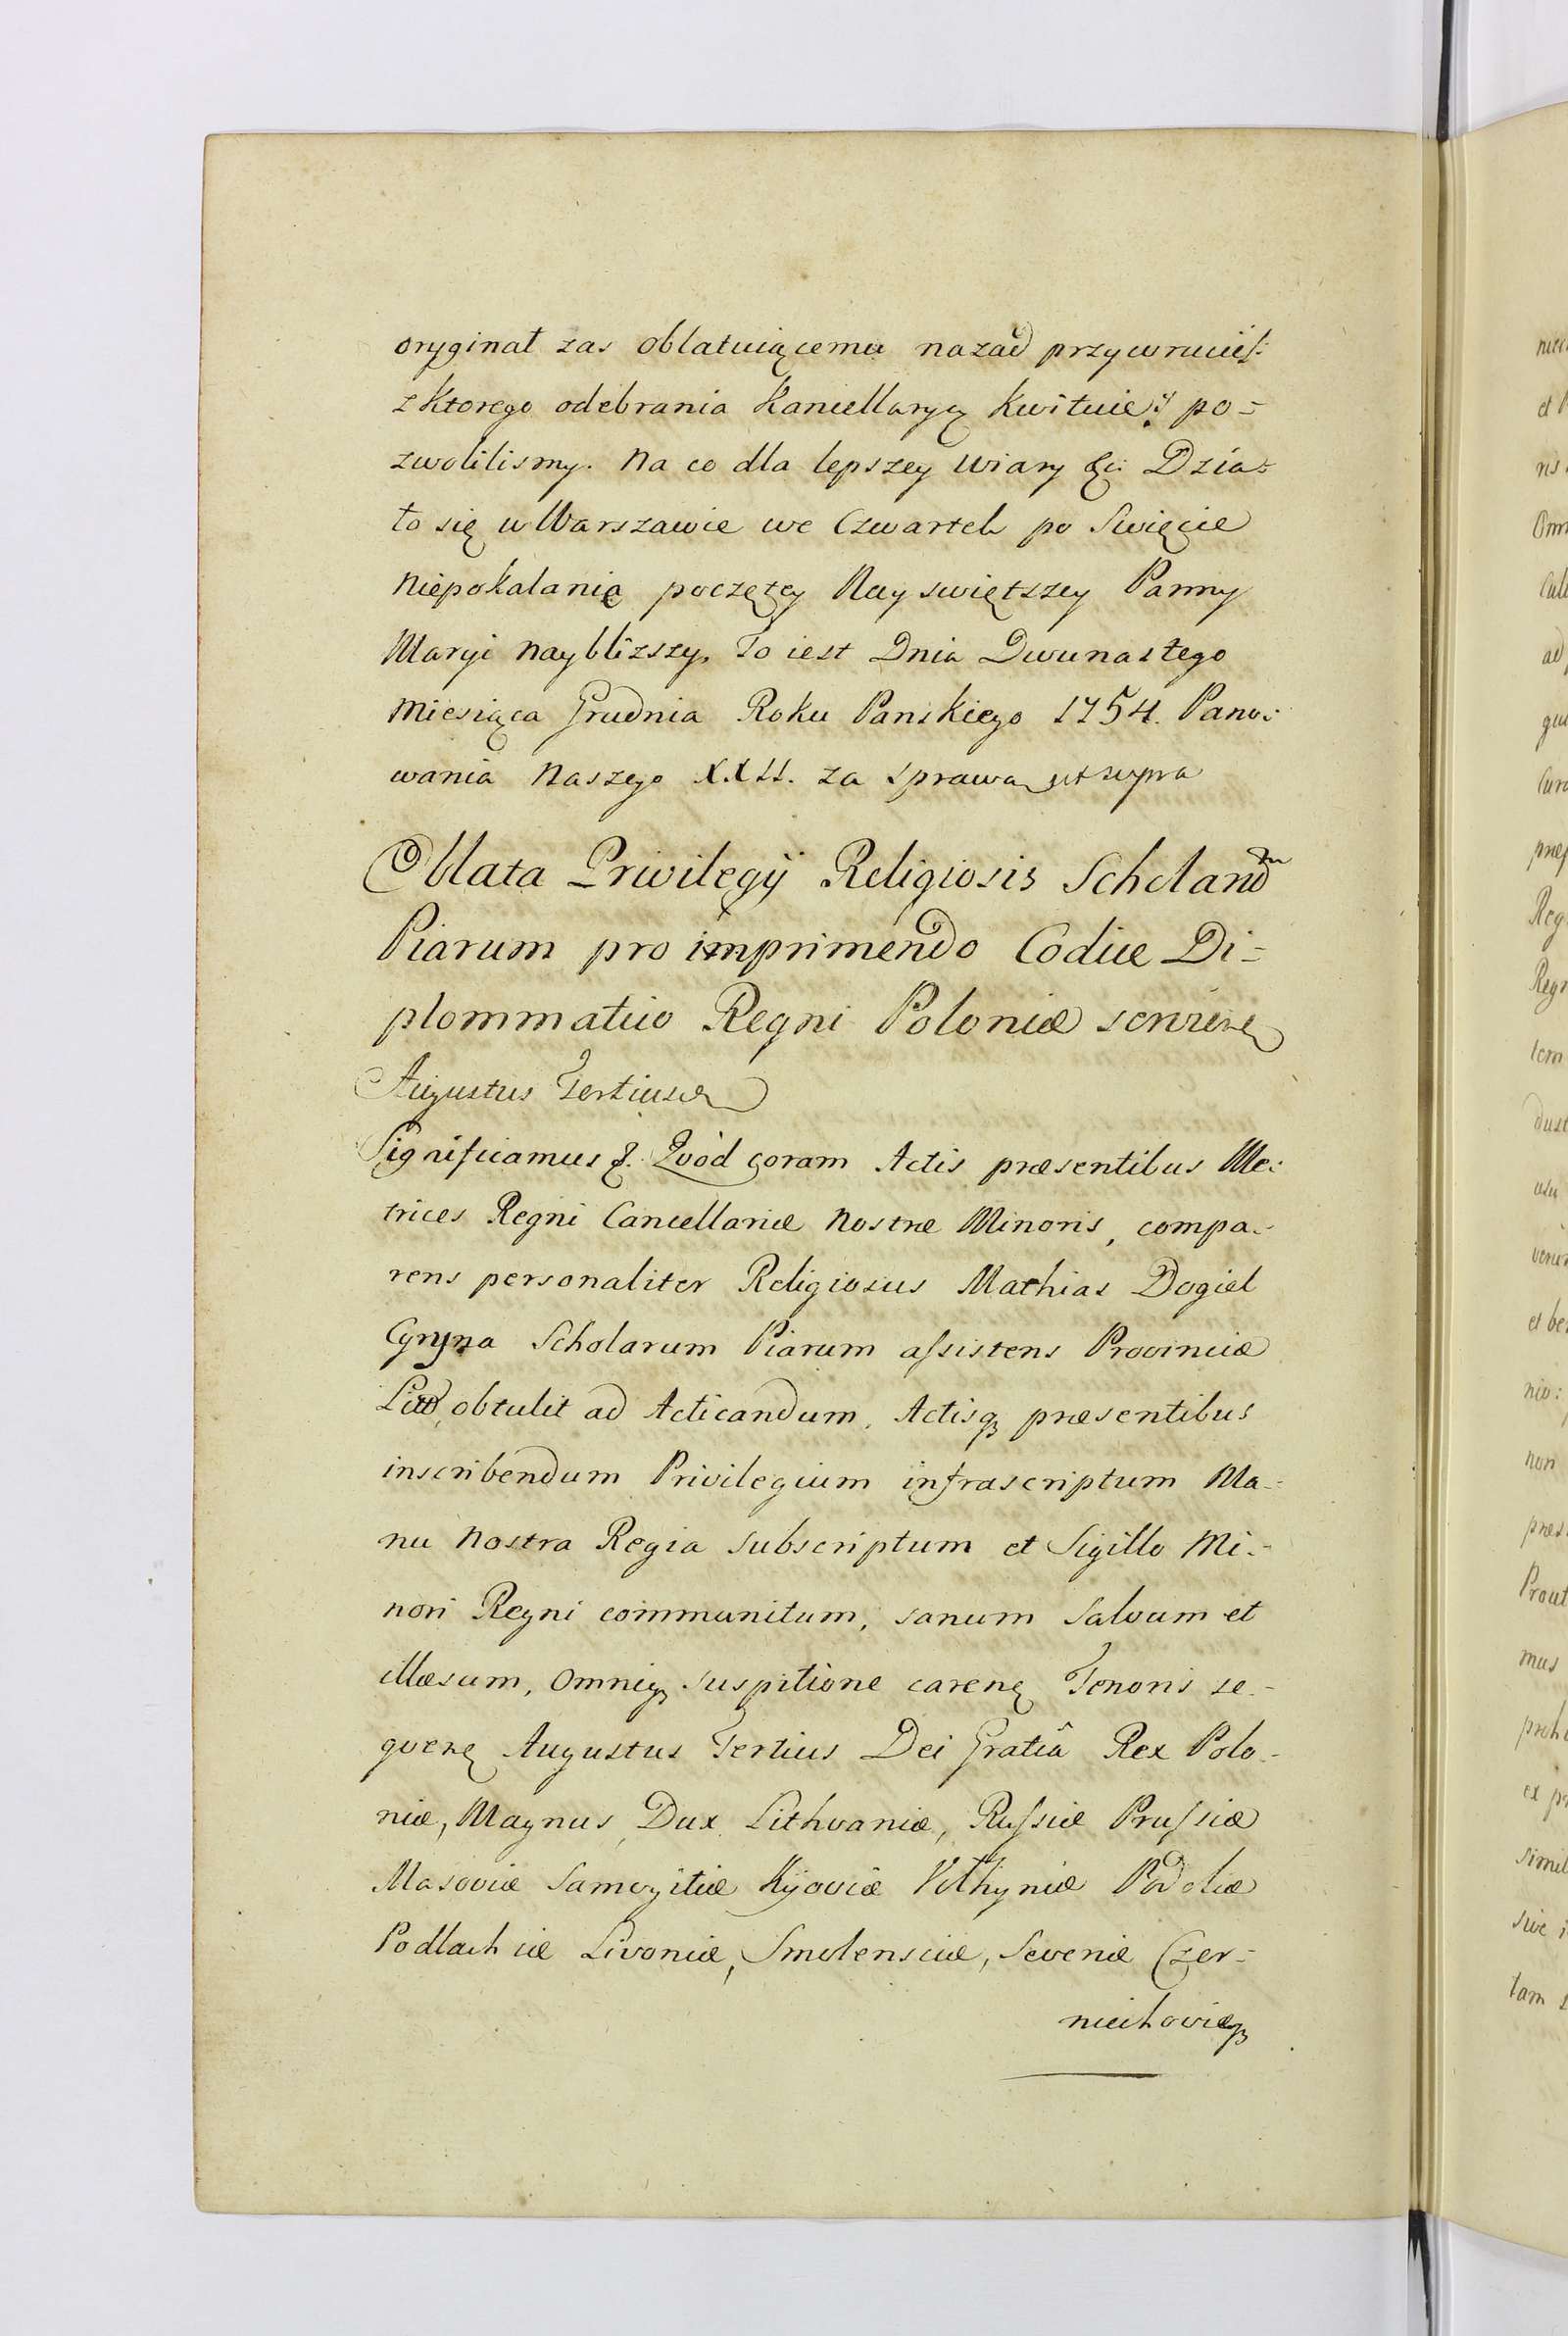 oryginał zas oblatuiącemu nazad przywrucić
z ktorego odebrania Kancellaryą kwituie, y po=
zwolilismy. Na co dla lepszey Wiary &c: Dzia=
ło się w Warszawie we Czwartek po Swięcie
Niepokalanie poczętey Nayswiętszey Panny
Maryi nayblizszy, To iest Dnia Dwunastego
Miesiąca Grudnia Roku Panskiego 1754. Pano=
wania Naszego XXII. za sprawą ut supra
Oblata Privilegij Religiosis Scholarum
Piarum pro imprimendo Codice Di=
plommatico Regni Poloniæ serviens
Augustus Tertius &
Significamus &. Quod coram Actis præsentibus Me=
trices Regni Cancellariæ Nostræ Minoris, compa=
rens personaliter Religiosus Mathias Dogiel
Scholarum Piarum assistens Provinciæ
obtulit ad Acticandum, Actisq præsentibus
inscribendum Privilegium infrascriptum Ma=
nu Nostra Regia subscriptum et Sigillo Mi=
nori Regni communitum, sanum salvum et
illæsum, omniq suspitione carens Tenoris se=
quens Augustus Tertius Dei Gratiâ Rex Polo=
niæ, Magnus Dux Lithvaniæ, Russiæ Prussiæ
Masoviæ Samogitiæ Kijoviæ Volhyniæ Podoliæ
Podlachiæ Livoniæ, Smolensciæ, Severiæ Czer=
niechoviæq